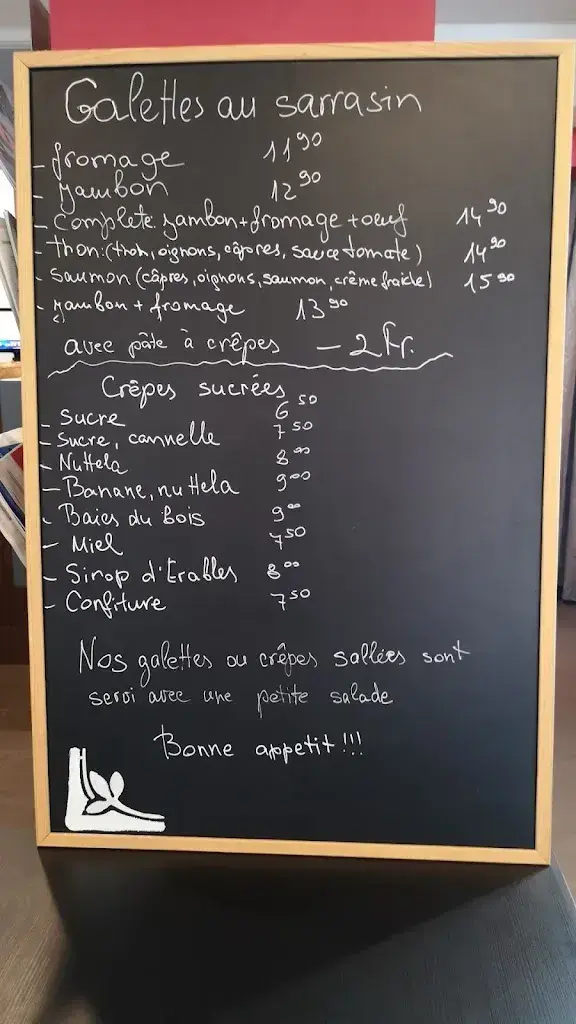 Galettes au sarrasin
- fromage 11 90
- jambon 12 90
- complete: jambon + fromage + oeuf 14 90
- thon: (thon, oignons, câpres, sauce tomate) 14 90
- saumon (câpres, oignons, saumon, crême fraiche) 15 90
- jambon + fromage 13 90
avec pâte à crêpes - 2 Fr.
Crêpes sucrées
- Sucre 6 50
- Sucre, cannelle 7 50
- Nuttela 8 00
- Banane, nuttela 9 00
- Baies du bois 9 00
- Miel 7 50
- Sirop d'Erables 8 00
- Confiture 7 50
Nos galettes ou crêpes sallées sont
servi avec une petite salade
Bonne appetit!!!